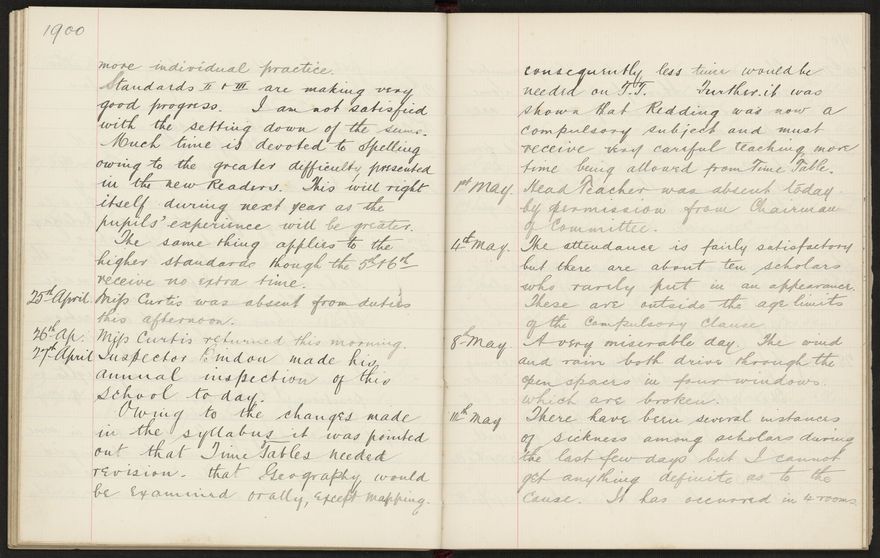 1900
more individual practice.
Standards II & III are making very
good progress. I am not satisfied
with the setting down of the sums.
Much time is devoted to Spelling
owing to the greater difficulty presented
in the new Readers. This will right
itself during next year as the
pupils' experience will be greater.
The same thing applies to the
higher standards though the 5th & 6th
receive no extra time.
25th April Miss Curtis was absent from duties
this afternoon.
26th Ap. Miss Curtis returned this morning.
27th April Inspector made his
annual inspection of this
School to day.
Owing to the changes made
in the syllabus it was pointed
out that Time Tables needed
revision. that Geography would
be examined orally, except mapping.
consequently less time would be
needed on T.T. Further it was
shown that Reading was now a
compulsory subject and must
receive very careful teaching, more
time being allowed from Time Table.
1st May. Head Teacher was absent today
by permission from Chairman
of Committee.
4th May. The attendance is fairly satisfactory
but there are about ten scholars
who rarely put in an appearance.
These are outside the age limits
of the Compulsory Clause
8th May A very miserable day. The wind
and rain both drive through the
open spaces in four windows.
which are broken.
11th May There have been several instances
of sickness among scholars during
the last few days but I cannot
get anything definite as to the
cause. It has occurred in 4 rooms